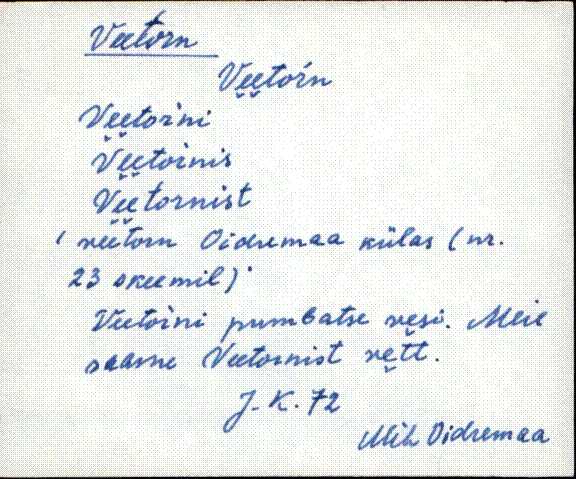 Veetorn
Ve̮e̮torn
Ve̮e̮torni
Ve̮e̮tornis
Ve̮e̮tornist
' veetorn Oidremaa külas (nr.
23 skeemil)'
Veetorni pumbatse ve̮si. Meie
saame Veetornist ve̮tt.
J. K. 72
Mih Oidremaa